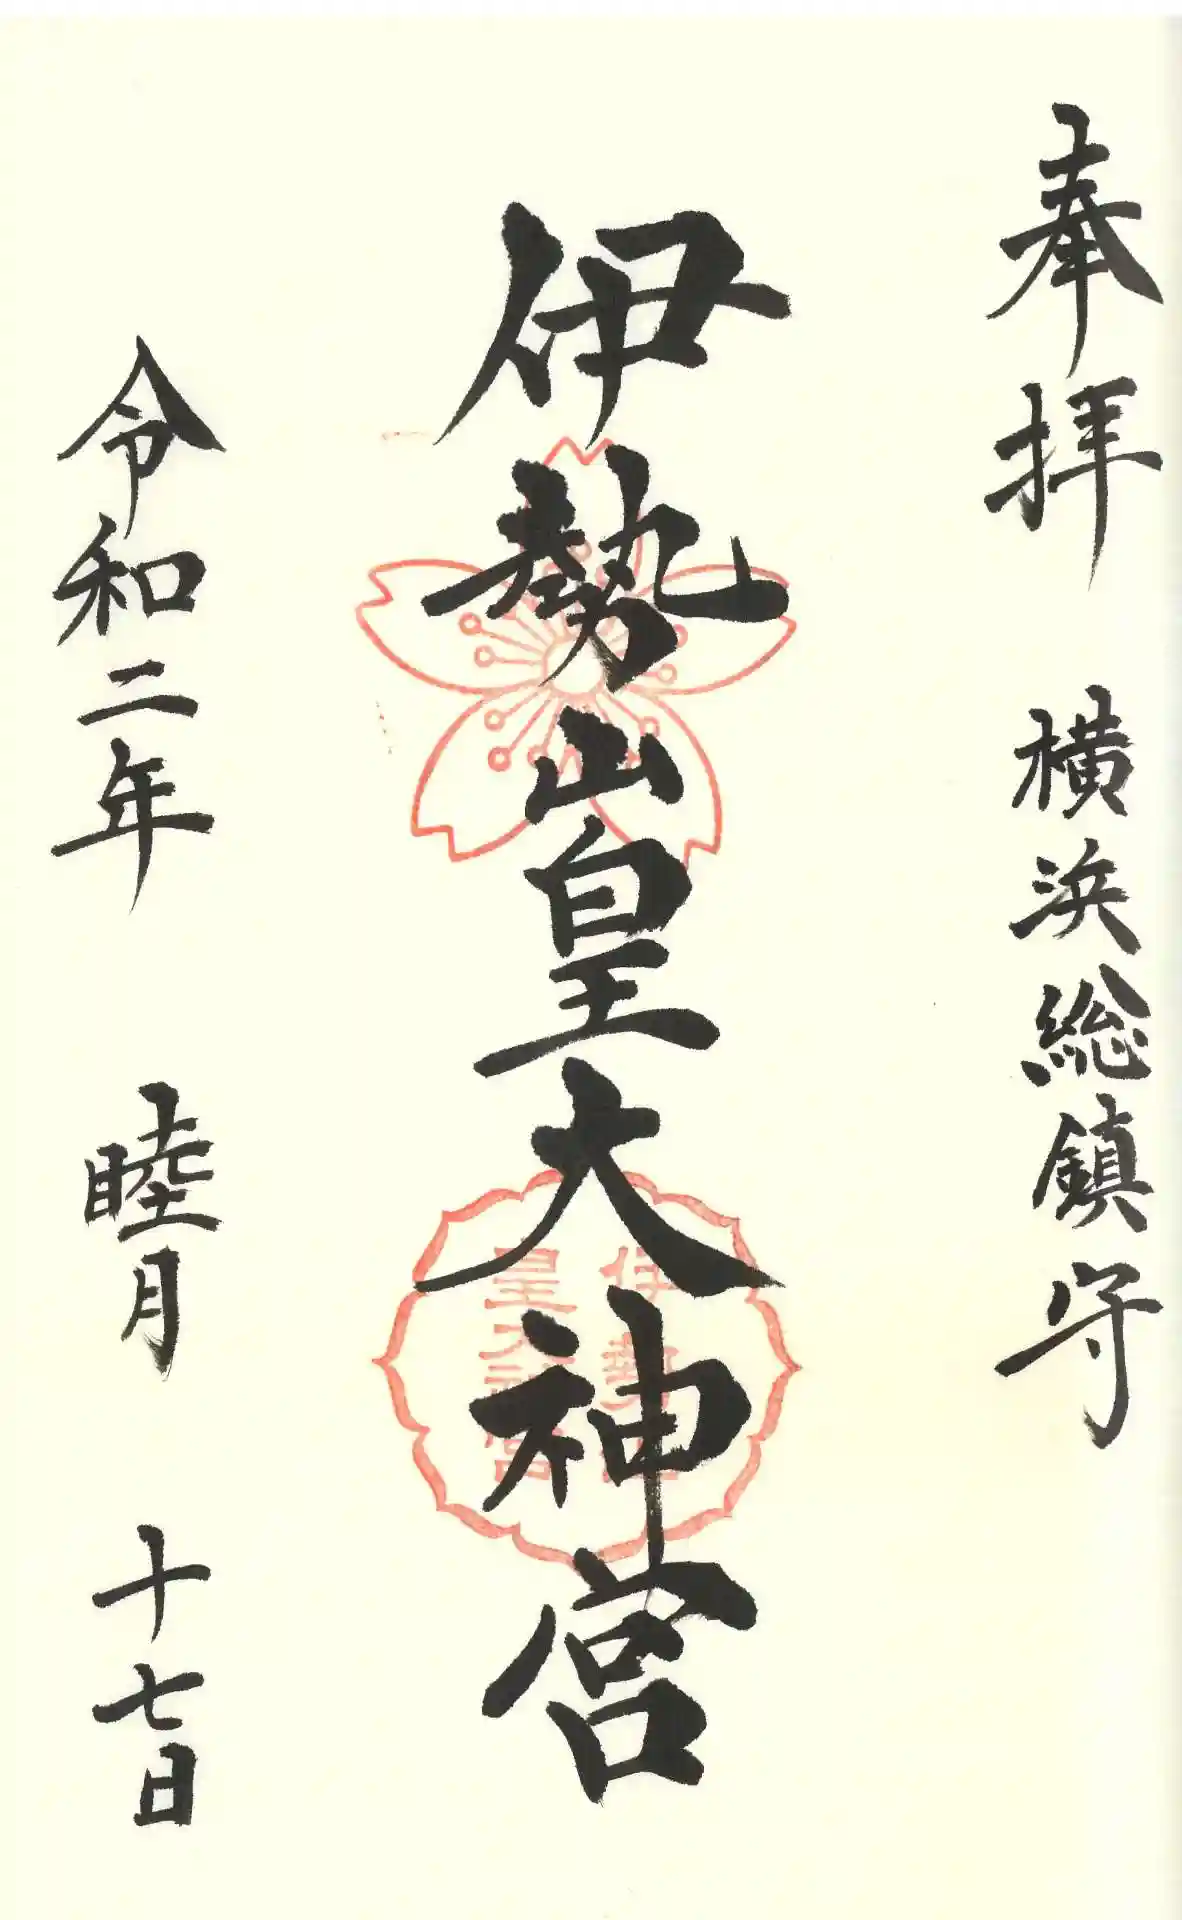 奉拝 横浜総鎮守
伊勢山皇大神宮
伊勢山
皇大神宮
令和二年 睦月 十七日